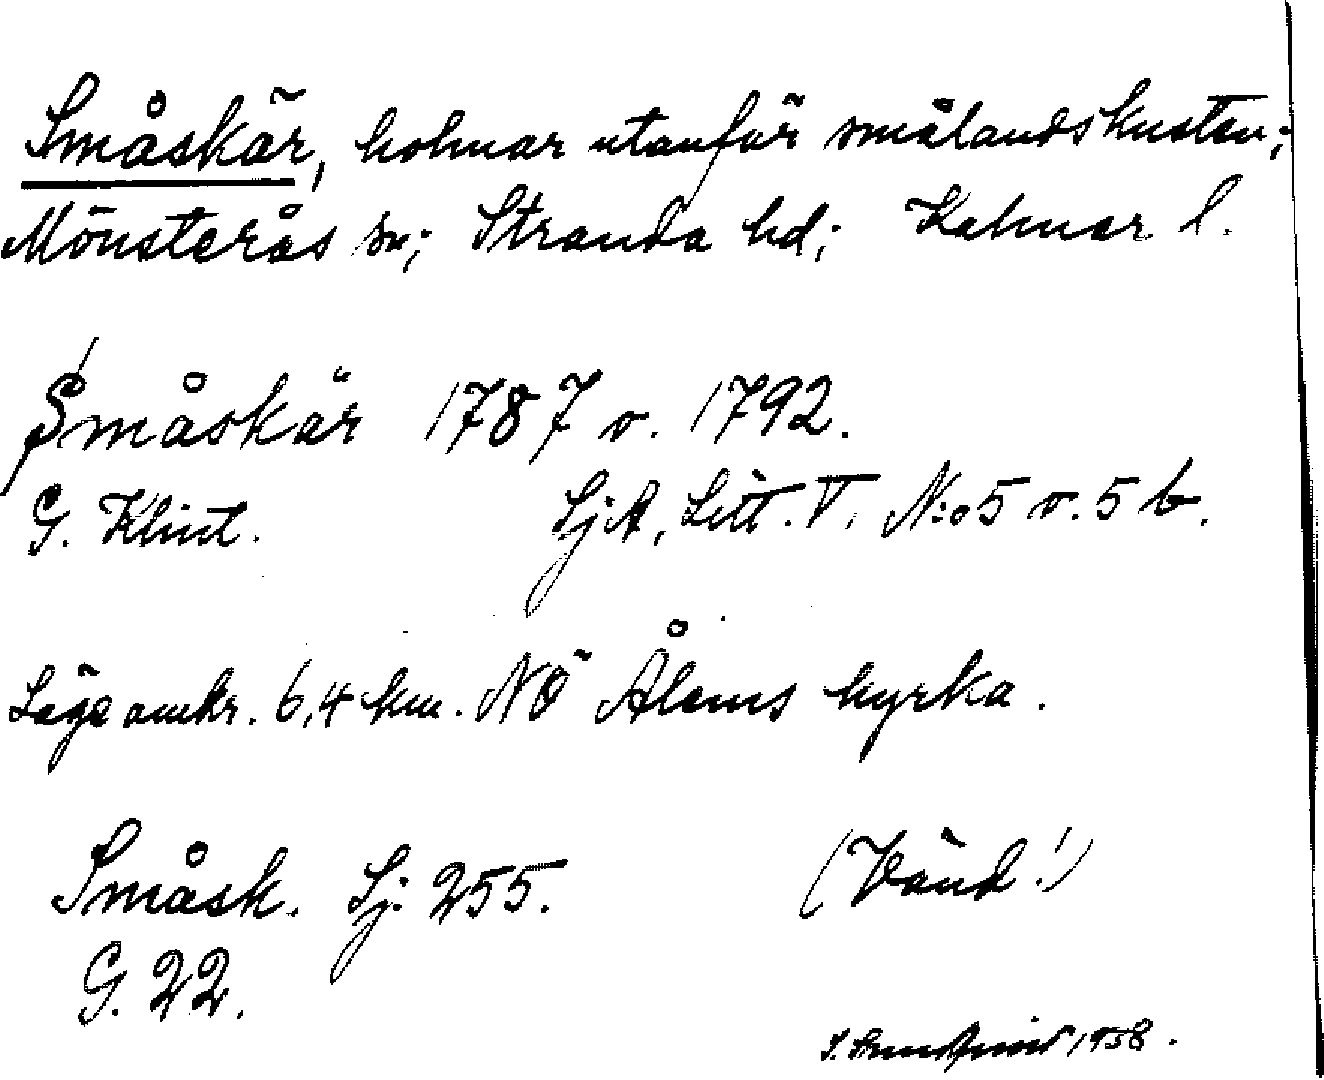 Småskär, holmar utanför smålandskusten;
Mönsterås sn; Stranda hd; Kalmar l.
Småskär 1787 o. 1792.
G. Klint. SjA, Litt. V. N:o 5 o. 5 b.
Läge omkr. 6,4 km. NÖ Ålems kyrka.
Småsk. Sj. 255. (Vänd!)
G. 22.
1958.